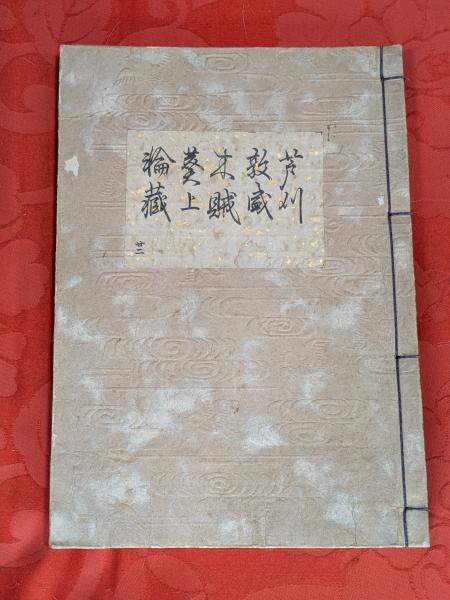 芦刈
敦盛
木賊
葵上
輪藏
廿二